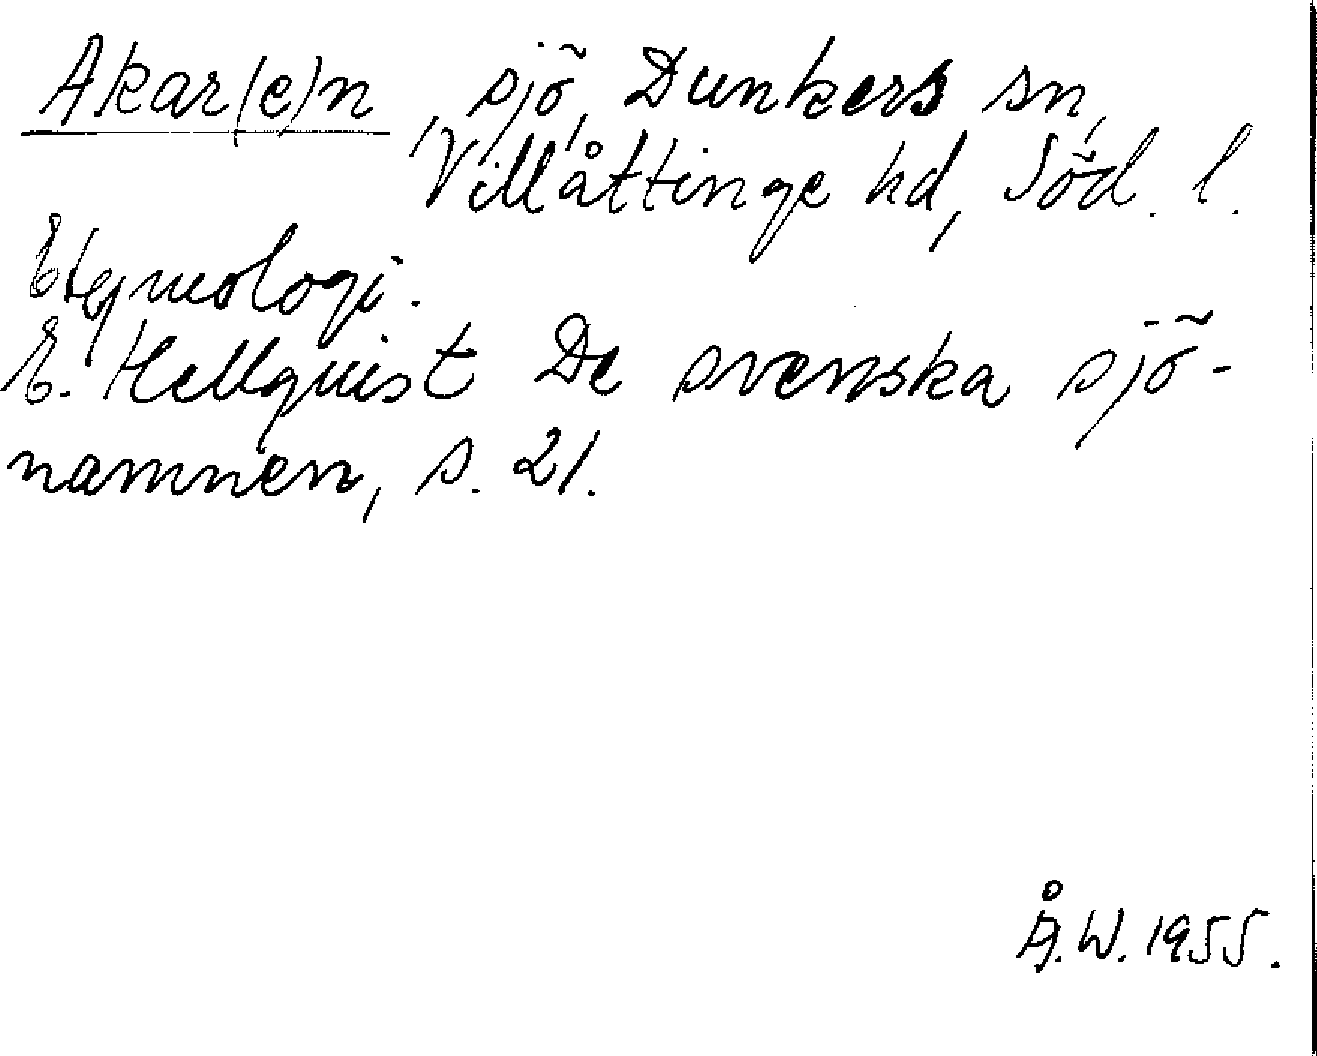 Akar(e)n, sjö, Dunkers sn,
Villåttinge hd, Söd. l.
Etymologi.
E. Hellquist De svenska sjö-
namnen, s. 21.
Å.W. 1955.